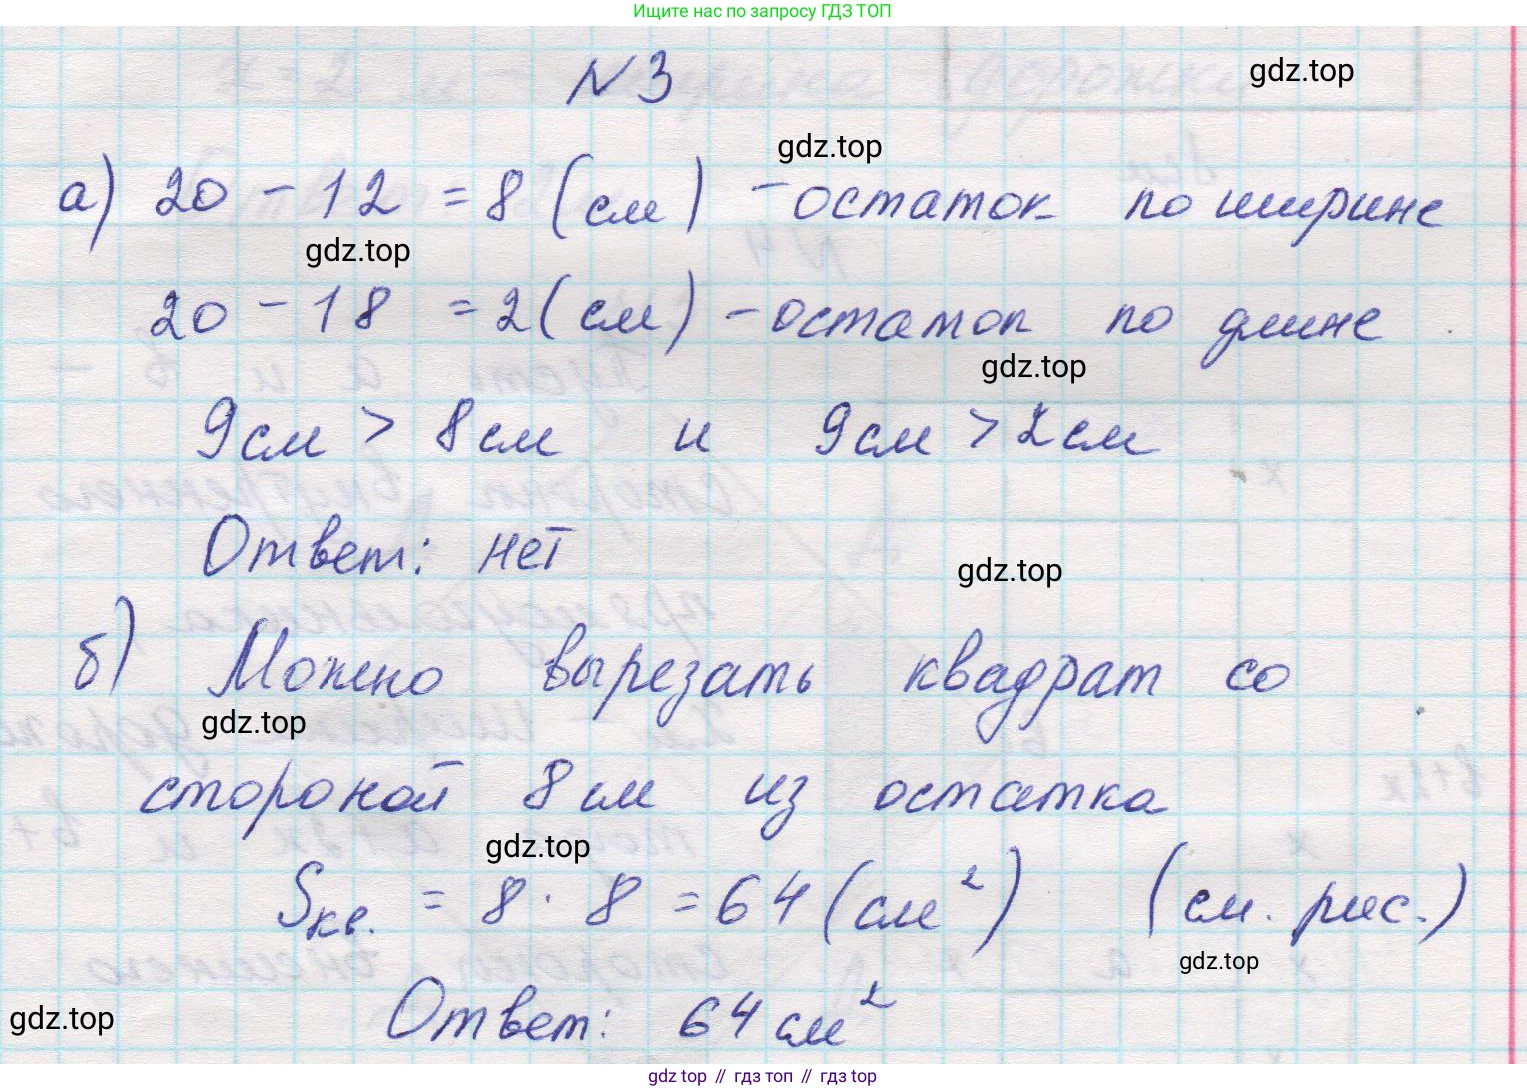 Ищите нас по запросу ГДЗ ТОП
N 3
gdz.top
gdz.top
а) 20 - 12 = 8 (см) - остаток по ширине
gdz.top
20 - 18 = 2 (см) - остаток по длине
gdz.top
9см > 8см и 9см > 2см
Ответ: нет
gdz.top
б) Можно вырезать квадрат со
gdz.top
стороной 8см из остатка
gdz.top
Sкв. = 8 · 8 = 64 (см²) (см. рис.)
gdz.top
Ответ: 64 см²
gdz.top
gdz top // гдз топ // гдз top